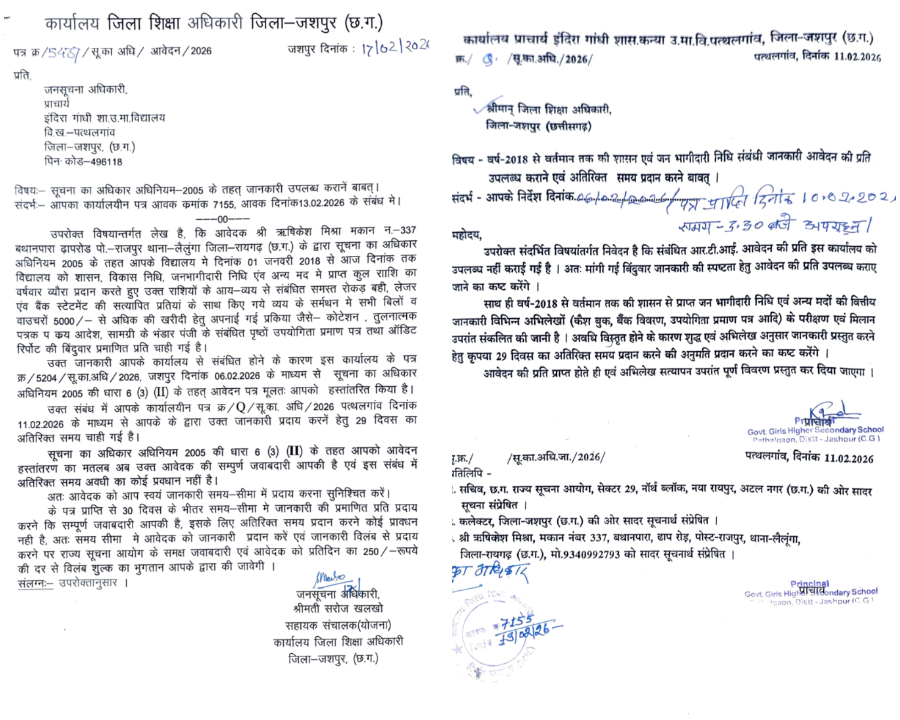 कार्यालय जिला शिक्षा अधिकारी जिला–जशपुर (छ.ग.)
पत्र क्र/5487/सू.का अधि/ आवेदन/2026 जशपुर दिनांक : 17/02/2026
प्रति,
जनसूचना अधिकारी,
प्राचार्य
इंदिरा गांधी शा.उ.मा.विद्यालय
वि.ख.–पत्थलगांव
जिला–जशपुर, (छ.ग.)
पिन कोड–496118
विषयः– सूचना का अधिकार अधिनियम–2005 के तहत् जानकारी उपलब्ध करानें बाबत्।
संदर्भः– आपका कार्यालयीन पत्र आवक कमांक 7155, आवक दिनांक13.02.2026 के संबंध मे।
––––00––––
उपरोक्त विषयान्तर्गत लेख है, कि आवेदक श्री ऋषिकेश मिश्रा मकान न.–337
बथानपारा ढापरोड पो.–राजपुर थाना–लैलुंगा जिला–रायगढ़ (छ.ग.) के द्वारा सूचना का अधिकार
अधिनियम 2005 के तहत आपके विद्यालय मे दिनांक 01 जनवरी 2018 से आज दिनांक तक
विद्यालय को शासन, विकास निधि, जनभागीदारी निधि एंव अन्य मद मे प्राप्त कुल राशि का
वर्षवार व्यौरा प्रदान करते हुए उक्त राशियों के आय–व्यय से संबंधित समस्त रोकड़ बही, लेजर
एंव बैंक स्टेटमेंट की सत्यापित प्रतियां के साथ किए गये व्यय के समंर्थन मे सभी बिलों व
वाउचरों 5000/– से अधिक की खरीदी हेतु अपनाई गई प्रकिया जैसे– कोटेशन , तुलनात्मक
पत्रक प क्रय आदेश, सामग्री के भंडार पंजी के संबंधित पृष्ठों उपयोगिता प्रमाण पत्र तथा ऑडिट
रिर्पोट की बिंदुवार प्रमाणित प्रति चाही गई है।
उक्त जानकारी आपके कार्यालय से संबंधित होने के कारण इस कार्यालय के पत्र
क्र/5204/सू.का.अधि/2026, जशपुर दिनांक 06.02.2026 के माध्यम से सूचना का अधिकार
अधिनियम 2005 की धारा 6 (3) (II) के तहत् आवेदन पत्र मूलतः आपको हस्तांतरित किया है।
उक्त संबंध में आपके कार्यालयीन पत्र क्र/Q/सू.का. अधि/2026 पत्थलगांव दिनांक
11.02.2026 के माध्यम से आपके के द्वारा उक्त जानकारी प्रदाय करनें हेतु 29 दिवस का
अतिरिक्त समय चाही गई है।
सूचना का अधिकार अधिनियम 2005 की धारा 6 (3) (II) के तहत आपको आवेदन
हस्तांतरण का मतलब अब उक्त आवेदक की सम्पुर्ण जवाबदारी आपकी है एवं इस संबंध में
अतिरिक्त समय अवधी का कोई प्रवधान नही है।
अतः आवेदक को आप स्वयं जानकारी समय–सीमा में प्रदाय करना सुनिश्चित करें।
के पत्र प्राप्ति से 30 दिवस के भीतर समय–सीमा मे जानकारी की प्रमाणित प्रति प्रदाय
करने कि सम्पूर्ण जवाबदारी आपकी है, इसके लिए अतिरिक्त समय प्रदान करने कोई प्राव्धन
नही है, अतः समय सीमा मे आवेदक को जानकारी प्रदान करें एवं जानकारी विलंब से प्रदाय
करने पर राज्य सूचना आयोग के समक्ष जवाबदारी एवं आवेदक को प्रतिदिन का 250/–रूपये
की दर से विलंब शुल्क का भुगतान आपके द्वारा की जावेगी ।
संलग्नः– उपरोक्तानुसार ।
जनसूचना अधिकारी,
श्रीमती सरोज खलखो
सहायक संचालक(योजना)
कार्यालय जिला शिक्षा अधिकारी
जिला–जशपुर, (छ.ग.)
कार्यालय प्राचार्य इंदिरा गांधी शास.कन्या उ.मा.वि.पत्थलगांव, जिला-जशपुर (छ.ग.)
क्र./ /सू.का.अधि./2026/ पत्थलगांव, दिनांक 11.02.2026
प्रति,
श्रीमान् जिला शिक्षा अधिकारी,
जिला-जशपुर (छत्तीसगढ़)
विषय - वर्ष-2018 से वर्तमान तक की शासन एवं जन भागीदारी निधि संबंधी जानकारी आवेदन की प्रति
उपलब्ध कराने एवं अतिरिक्त समय प्रदान करने बावत् ।
संदर्भ - आपके निर्देश दिनांक 06/02/2026/(पत्र प्राप्ति दिनांक 10.02.202
समय - 3.30 बजे अपराह्न)
महोदय,
उपरोक्त संदर्भित विषयांतर्गत निवेदन है कि संबंधित आर.टी.आई. आवेदन की प्रति इस कार्यालय को
उपलब्ध नहीं कराई गई है । अतः मांगी गई बिंदुवार जानकारी की स्पष्टता हेतु आवेदन की प्रति उपलब्ध कराए
जाने का कष्ट करेंगे ।
साथ ही वर्ष-2018 से वर्तमान तक की शासन से प्राप्त जन भागीदारी निधि एवं अन्य मदों की वित्तीय
जानकारी विभिन्न अभिलेखों (कैश बुक, बैंक विवरण, उपयोगिता प्रमाण पत्र आदि) के परीक्षण एवं मिलान
उपरांत संकलित की जानी है । अवधि विस्तृत होने के कारण शुद्ध एवं अभिलेख अनुसार जानकारी प्रस्तुत करने
हेतु कृपया 29 दिवस का अतिरिक्त समय प्रदान करने की अनुमति प्रदान करने का कष्ट करेंगे ।
आवेदन की प्रति प्राप्त होते ही एवं अभिलेख सत्यापन उपरांत पूर्ण विवरण प्रस्तुत कर दिया जाएगा ।
प्राचार्य
Principal
Govt. Girls Higher Secondary School
Pathalgaon, Distt - Jashpur (C.G.)
पृ.क्र./ /सू.का.अधि.जा./2026/ पत्थलगांव, दिनांक 11.02.2026
तिलिपि -
. सचिव, छ.ग. राज्य सूचना आयोग, सेक्टर 29, नॉर्थ ब्लॉक, नया रायपुर, अटल नगर (छ.ग.) की ओर सादर
सूचना संप्रेषित ।
. कलेक्टर, जिला-जशपुर (छ.ग.) की ओर सादर सूचनार्थ संप्रेषित ।
. श्री ऋषिकेश मिश्रा, मकान नंबर 337, बथानपारा, ढाप रोड, पोस्ट-राजपुर, थाना-लैलूंगा,
जिला-रायगढ़ (छ.ग.), मो.9340992793 को सादर सूचनार्थ संप्रेषित ।
का अधिकार
प्राचार्य
Principal
Govt. Girls Higher Secondary School
Pathalgaon, Distt - Jashpur (C.G.)
7155
13/02/26